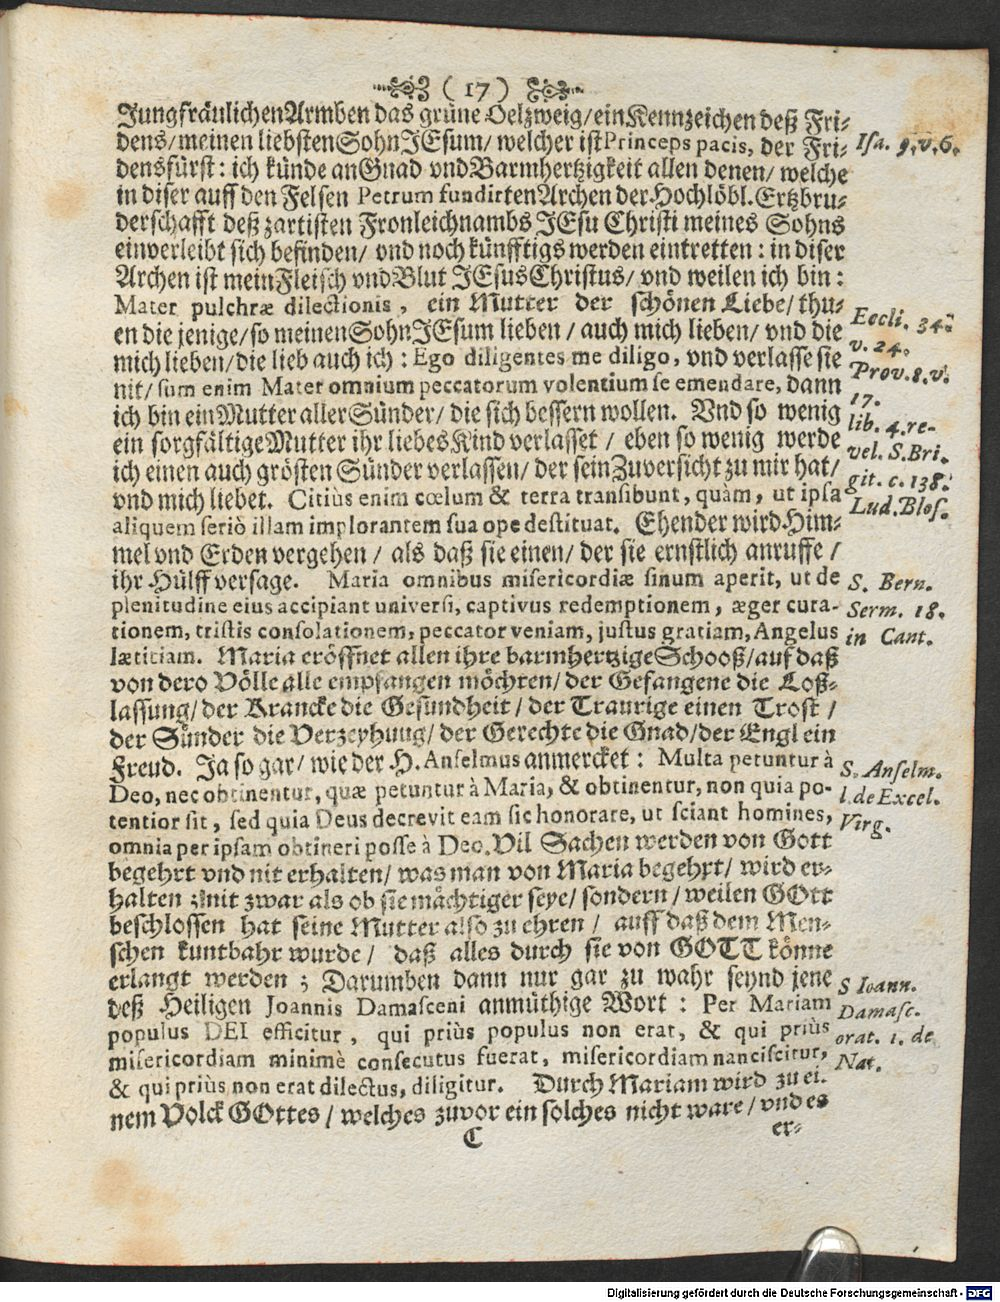 ( 17 )
Jungfräulichen Armben das grüne Oelzweig/ ein Kennzeichen deß Fri-
dens/ meinen liebsten Sohn JEsum/ welcher ist Princeps pacis, der Fri- Isa. 9. v. 6.
densfürst: ich künde an Gnad vnd Barmhertzigkeit allen denen/ welche
in diser auff den Felsen Petrum fundirten Archen der Hochlöbl. Ertzbru-
derschafft deß zartisten Fronleichnambs JEsu Christi meines Sohns
einverleibt sich befinden/ vnd noch künfftigs werden eintretten: in diser
Archen ist mein Fleisch vnd Blut JEsus Christus/ vnd weilen ich bin:
Mater pulchræ dilectionis, ein Mutter der schönen Liebe/ thu- Eccli. 34.
en die jenige/ so meinen Sohn JEsum lieben/ auch mich lieben/ vnd die v. 24.
mich lieben/ die lieb auch ich: Ego diligentes me diligo, vnd verlasse sie Prov. 8. v.
nit/ sum enim Mater omnium peccatorum volentium se emendare, dann 17.
ich bin ein Mutter aller Sünder/ die sich bessern wollen. Vnd so wenig lib. 4. re-
ein sorgfältige Mutter ihr liebes Kind verlasset/ eben so wenig werde vel. S. Bri.
ich einen auch grösten Sünder verlassen/ der sein Zuversicht zu mir hat/ git. c. 138.
vnd mich liebet. Citiùs enim cœlum & terra transibunt, quàm, ut ipsa Lud. Blos.
aliquem seriò illam implorantem sua ope destituat. Ehender wird Him-
mel vnd Erden vergehen/ als daß sie einen/ der sie ernstlich anruffe/
ihr Hülff versage. Maria omnibus misericordiæ sinum aperit, ut de S. Bern.
plenitudine eius accipiant universi, captivus redemptionem, æger cura- Serm. 18.
tionem, tristis consolationem, peccator veniam, justus gratiam, Angelus in Cant.
lætitiam. Maria eröffnet allen ihre barmhertzige Schooß/ auf daß
von dero Völle alle empfangen möchten/ der Gefangene die Loß-
lassung/ der Krancke die Gesundheit/ der Traurige einen Trost/
der Sünder die Verzeyhung/ der Gerechte die Gnad/ der Engl ein
Freud. Ja so gar/ wie der H. Anselmus anmercket: Multa petuntur à S. Anselm.
Deo, nec obtinentur, quæ petuntur à Maria, & obtinentur, non quia po- l. de Excel.
tentior sit, sed quia Deus decrevit eam sic honorare, ut sciant homines, Virg.
omnia per ipsam obtineri posse à Deo. Vil Sachen werden von Gott
begehrt vnd nit erhalten/ was man von Maria begehrt/ wird er-
halten: nit zwar als ob sie mächtiger seye/ sondern/ weilen GOtt
beschlossen hat seine Mutter also zu ehren/ auff daß dem Men-
schen kuntbahr wurde/ daß alles durch sie von GOTT könne
erlangt werden; Darumben dann nur gar zu wahr seynd jene S Ioann.
deß Heiligen Joannis Damasceni anmüthige Wort: Per Mariam Damasc.
populus DEI efficitur, qui priùs populus non erat, & qui priùs orat. 1. de
misericordiam minimè consecutus fuerat, misericordiam nanciscitur, Nat.
& qui priùs non erat dilectus, diligitur. Durch Mariam wird zu ei-
nem Volck GOttes/ welches zuvor ein solches nicht ware/ vnd es
C er-
Digitalisierung gefördert durch die Deutsche Forschungsgemeinschaft - DFG